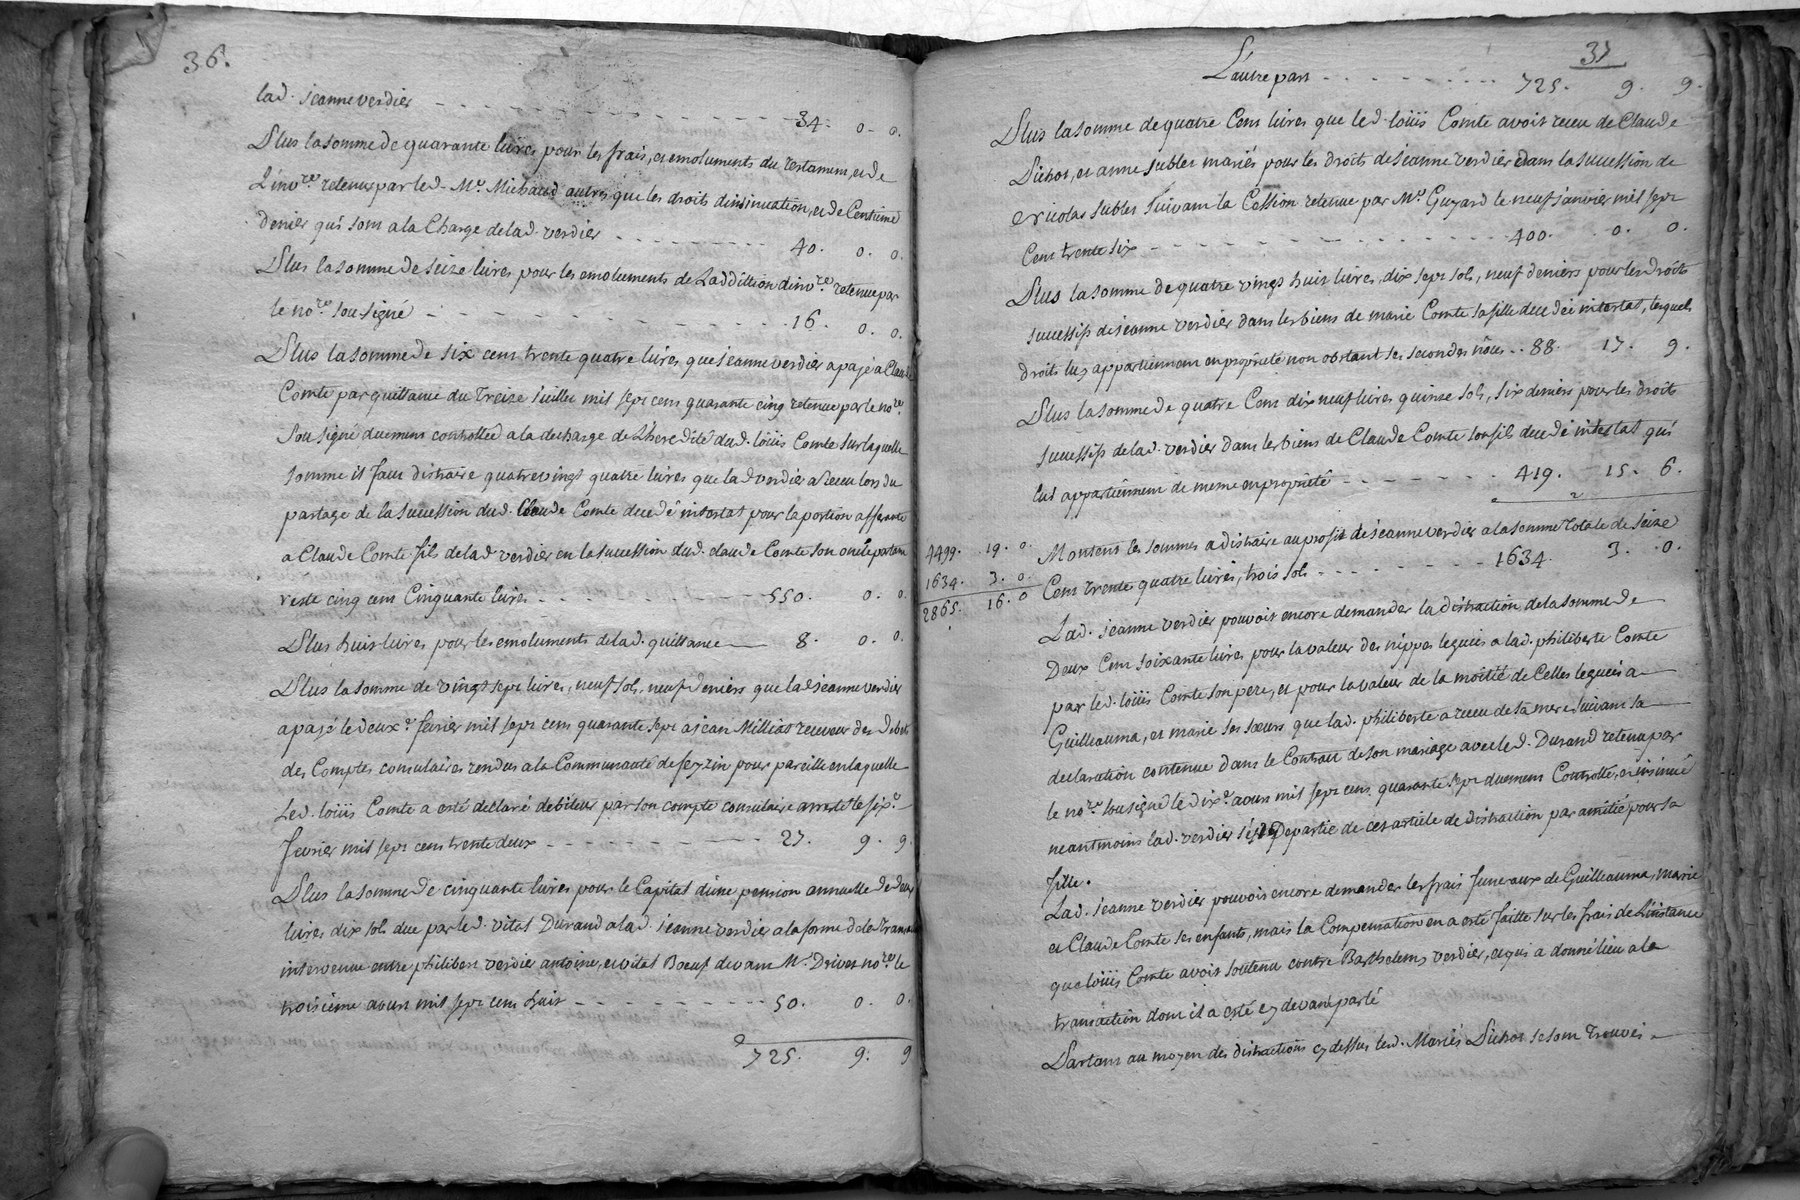 36.
lad. jeanne verdier - - - - - - 34. 0. 0.
Plus la somme de quarante livres pour les frais, et emoluments du testament, et de
L'inv.re retenus par led. M.e Michaud autres que les droits d'insinuation, et de Centieme
denier qui sont a la Charge de lad. verdier - - - - - - 40. 0. 0.
Plus la somme de seize livres pour les emoluments de Laddition d'inv.re retenue par
le no.re sousigné - - - - - - 16. 0. 0.
Plus la somme de six cent trente quatre livres que jeanne verdier a payé a Claude
Comte par quittance du Treize juillet mil sept cent quarante cinq retenue par le no.re
sousigné duement controllée a la decharge de L'heredité dud. loüis Comte sur laquelle
somme il faut distraire quatre vingt quatre livres que lad verdier a Receu lors du
partage de la succession dud. Claude Comte decedé intestat pour la portion afferante
a Claude Comte fils de lad verdier en la succession dud. claude Comte son oncle partant
reste cinq cent Cinquante livres - - - - - - 550. 0. 0.
Plus huit livres pour les emoluments de lad. quittance - 8. 0. 0.
Plus la somme de vingt sept livres, neuf sols, neuf deniers que lad jeanne verdier
a payé le deux.e fevrier mil sept cent quarante sept a jean Milliat receveur des debets
des Comptes consulaires rendus a la Communauté de feyzin pour pareille en laquelle
Led. loüis Comte a esté declaré debiteur par son compte consulaire arresté le six.e
fevrier mil sept cent trente deux - - - - - - 27. 9. 9
Plus la somme de cinquante livres pour le Capital d'une pension annuelle de deux
livres dix sols due par led. vital Durand a lad. jeanne verdier a la forme de la Transaction
intervenue entre philibert verdier antoine, et vital Boeuf devant M.e Drivet no.re le
troisieme avril mil sept cent huit - - - - - - 50. 0. 0.
725. 9. 9
37
L'autre part - - - - - - 725. 9. 9.
Plus la somme de quatre Cent livres que led. loüis Comte avoit receu de Claude
Pichot, et anne sublet mariés pour les droits de jeanne verdier dans la succession de
Nicolas sublet suivant la Cession retenue par M.e Guyard le neuf janvier mil sept
Cent trente six - - - - - - 400. 0. 0.
Plus la somme de quatre vingt huit livres, dix sept sols, neuf deniers pour les droits
successifs de jeanne verdier dans les biens de marie Comte sa fille decedée intestat, lesquels
droits luy appartiennent en proprieté non obstant ses secondes nôces - - 88. 17. 9.
Plus la somme de quatre Cent dix neuf livres quinze sols, six deniers pour les droits
successifs de lad. verdier dans les biens de Claude Comte son fils decedé intestat qui
lui appartiennent de meme en proprieté - - - - - - 419. 15. 6.
4499. 19. 0
1634. 3. 0
2865. 16. 0
Montent les sommes a distraire au profit de jeanne verdier a la somme totale de seize
Cent trente quatre livres, trois sols - - - - - - 1634. 3. 0.
Lad. jeanne verdier pouvoit encore demander la distraction de la somme de
Deux Cent soixante livres pour la valeur des nippes leguées a lad. philiberte Comte
par led. loüis Comte son pere, et pour la valeur de la moitié de Celles leguées a
Guilleauma, et marie ses soeurs que lad. philiberte a receu de sa mere suivant sa
declaration contenue dans le Contrat de son mariage avec led. Durand retenu par
le no.re sousigné le dix.e avril mil sept cent quarante sept duement Controllé, et insinué
neantmoins lad. verdier s'est Departie de cet article de distraction par amitié pour sa
fille.
Lad. jeanne verdier pouvoit encore demander les frais funeraux de Guilleauma, marie
et Claude Comte ses enfants, mais la Compensation en a esté faitte sur les frais de L'instance
que loüis Comte avoit soutenu contre Barthelemy verdier, et qui a donné lieu a la
transaction dont il a esté cy devant parlé
Partant au moyen des distractions cy dessus led. Mariés Pichot se sont trouvés